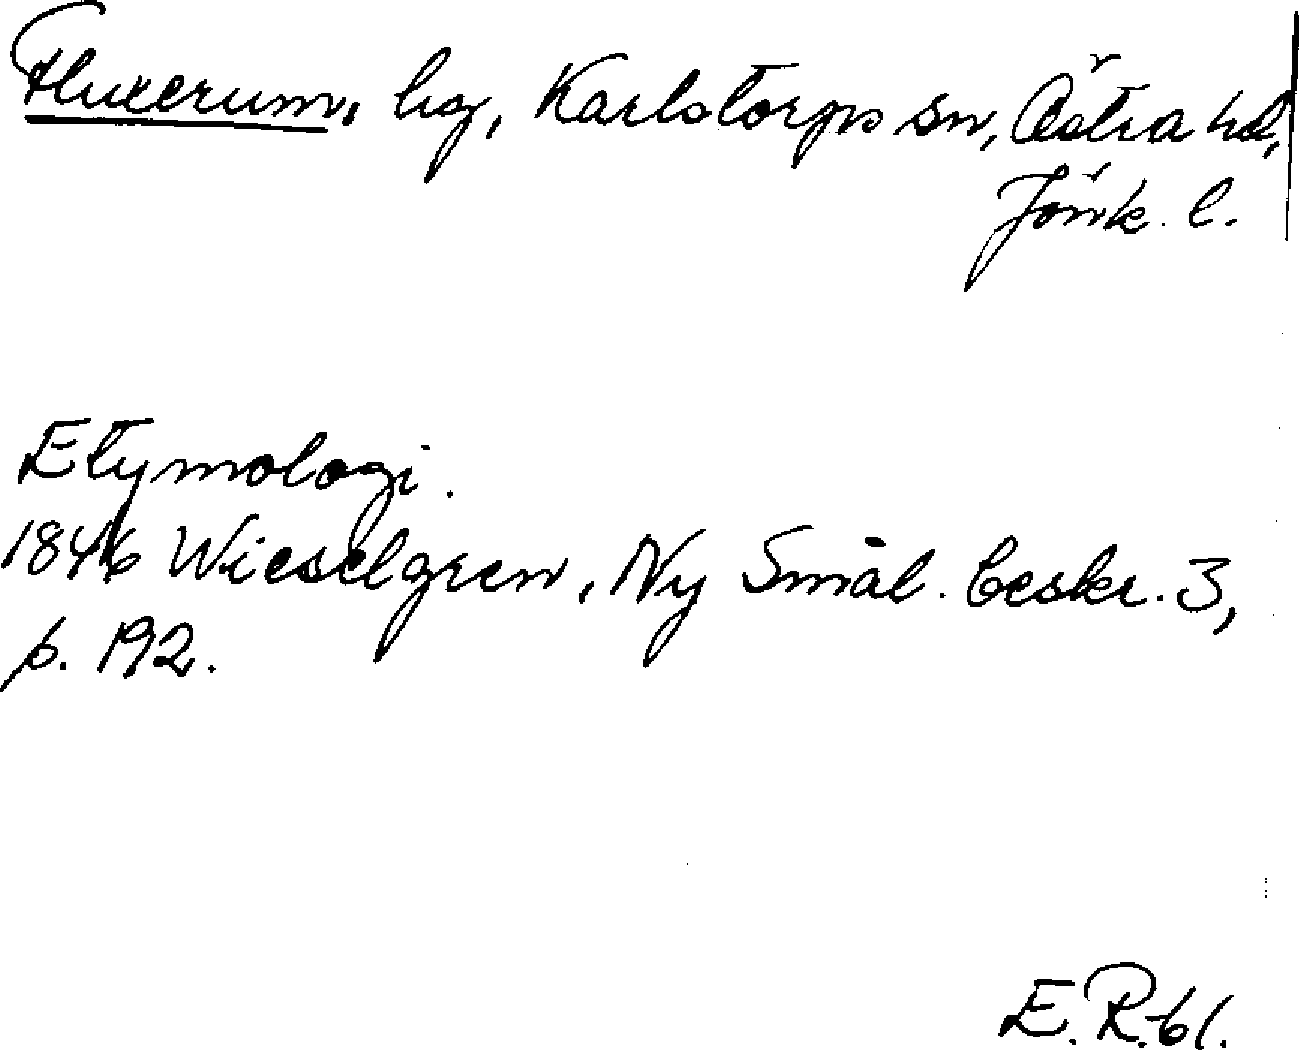 Fluxerum, by, Karlstorps sn, Östra hd,
Jönk. l.
Etymologi.
1846 Wieselgren, Ny Smål. beskr. 3,
p. 192.
E. R. 61.